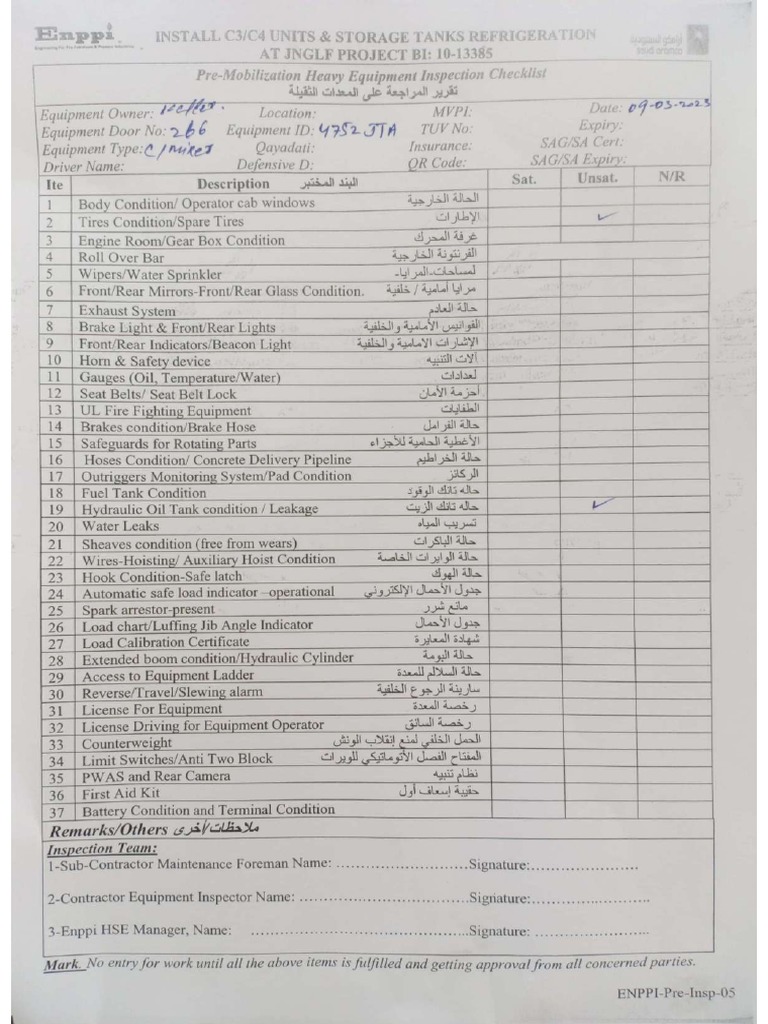 Enppi
Engineering For The Petroleum & Process Industries
INSTALL C3/C4 UNITS & STORAGE TANKS REFRIGERATION
AT JNGLF PROJECT BI: 10-13385
أرامكو السعودية
saudi aramco
Pre-Mobilization Heavy Equipment Inspection Checklist
تقرير المراجعة على المعدات الثقيلة
Equipment Owner: Location: MVPI: Date: 09-03-2023
Equipment Door No: 266 Equipment ID: 4752 JTA TUV No: Expiry:
Equipment Type: C/mixer Qayadati: Insurance: SAG/SA Cert:
Driver Name: Defensive D: QR Code: SAG/SA Expiry:
Ite Description البند المختبر Sat. Unsat. N/R
1 Body Condition/ Operator cab windows الحالة الخارجية
2 Tires Condition/Spare Tires الإطارات ✓
3 Engine Room/Gear Box Condition غرفة المحرك
4 Roll Over Bar الفرنتونة الخارجية
5 Wipers/Water Sprinkler لمساحات-المرايا-
6 Front/Rear Mirrors-Front/Rear Glass Condition. مرايا أمامية / خلفية
7 Exhaust System حالة العادم
8 Brake Light & Front/Rear Lights الفوانيس الأمامية والخلفية
9 Front/Rear Indicators/Beacon Light الإشارات الامامية والخلفية
10 Horn & Safety device ألات التنبيه
11 Gauges (Oil, Temperature/Water) لعدادات
12 Seat Belts/ Seat Belt Lock أحزمة الأمان
13 UL Fire Fighting Equipment الطفايات
14 Brakes condition/Brake Hose حالة الفرامل
15 Safeguards for Rotating Parts الأغطية الحامية للأجزاء
16 Hoses Condition/ Concrete Delivery Pipeline حالة الخراطيم
17 Outriggers Monitoring System/Pad Condition الركائز
18 Fuel Tank Condition حاله تانك الوقود
19 Hydraulic Oil Tank condition / Leakage حاله تانك الزيت ✓
20 Water Leaks تسريب المياه
21 Sheaves condition (free from wears) حالة الباكرات
22 Wires-Hoisting/ Auxiliary Hoist Condition حالة الوايرات الخاصة
23 Hook Condition-Safe latch حالة الهوك
24 Automatic safe load indicator –operational جدول الأحمال الإلكتروني
25 Spark arrestor-present مانع شرر
26 Load chart/Luffing Jib Angle Indicator جدول الأحمال
27 Load Calibration Certificate شهادة المعايرة
28 Extended boom condition/Hydraulic Cylinder حالة البومة
29 Access to Equipment Ladder حالة السلالم للمعدة
30 Reverse/Travel/Slewing alarm سارينة الرجوع الخلفية
31 License For Equipment رخصة المعدة
32 License Driving for Equipment Operator رخصة السائق
33 Counterweight الحمل الخلفي لمنع إنقلاب الونش
34 Limit Switches/Anti Two Block المفتاح الفصل الأتوماتيكي للويرات
35 PWAS and Rear Camera نظام تنبيه
36 First Aid Kit حقيبة إسعاف أول
37 Battery Condition and Terminal Condition
Remarks/Others ملاحظات/أخرى
Inspection Team:
1-Sub-Contractor Maintenance Foreman Name: ……………………..Signature:…………………
2-Contractor Equipment Inspector Name: ……………………………Signature:…………………
3-Enppi HSE Manager, Name: ……………………………………Signature:…………………
Mark. No entry for work until all the above items is fulfilled and getting approval from all concerned parties.
ENPPI-Pre-Insp-05